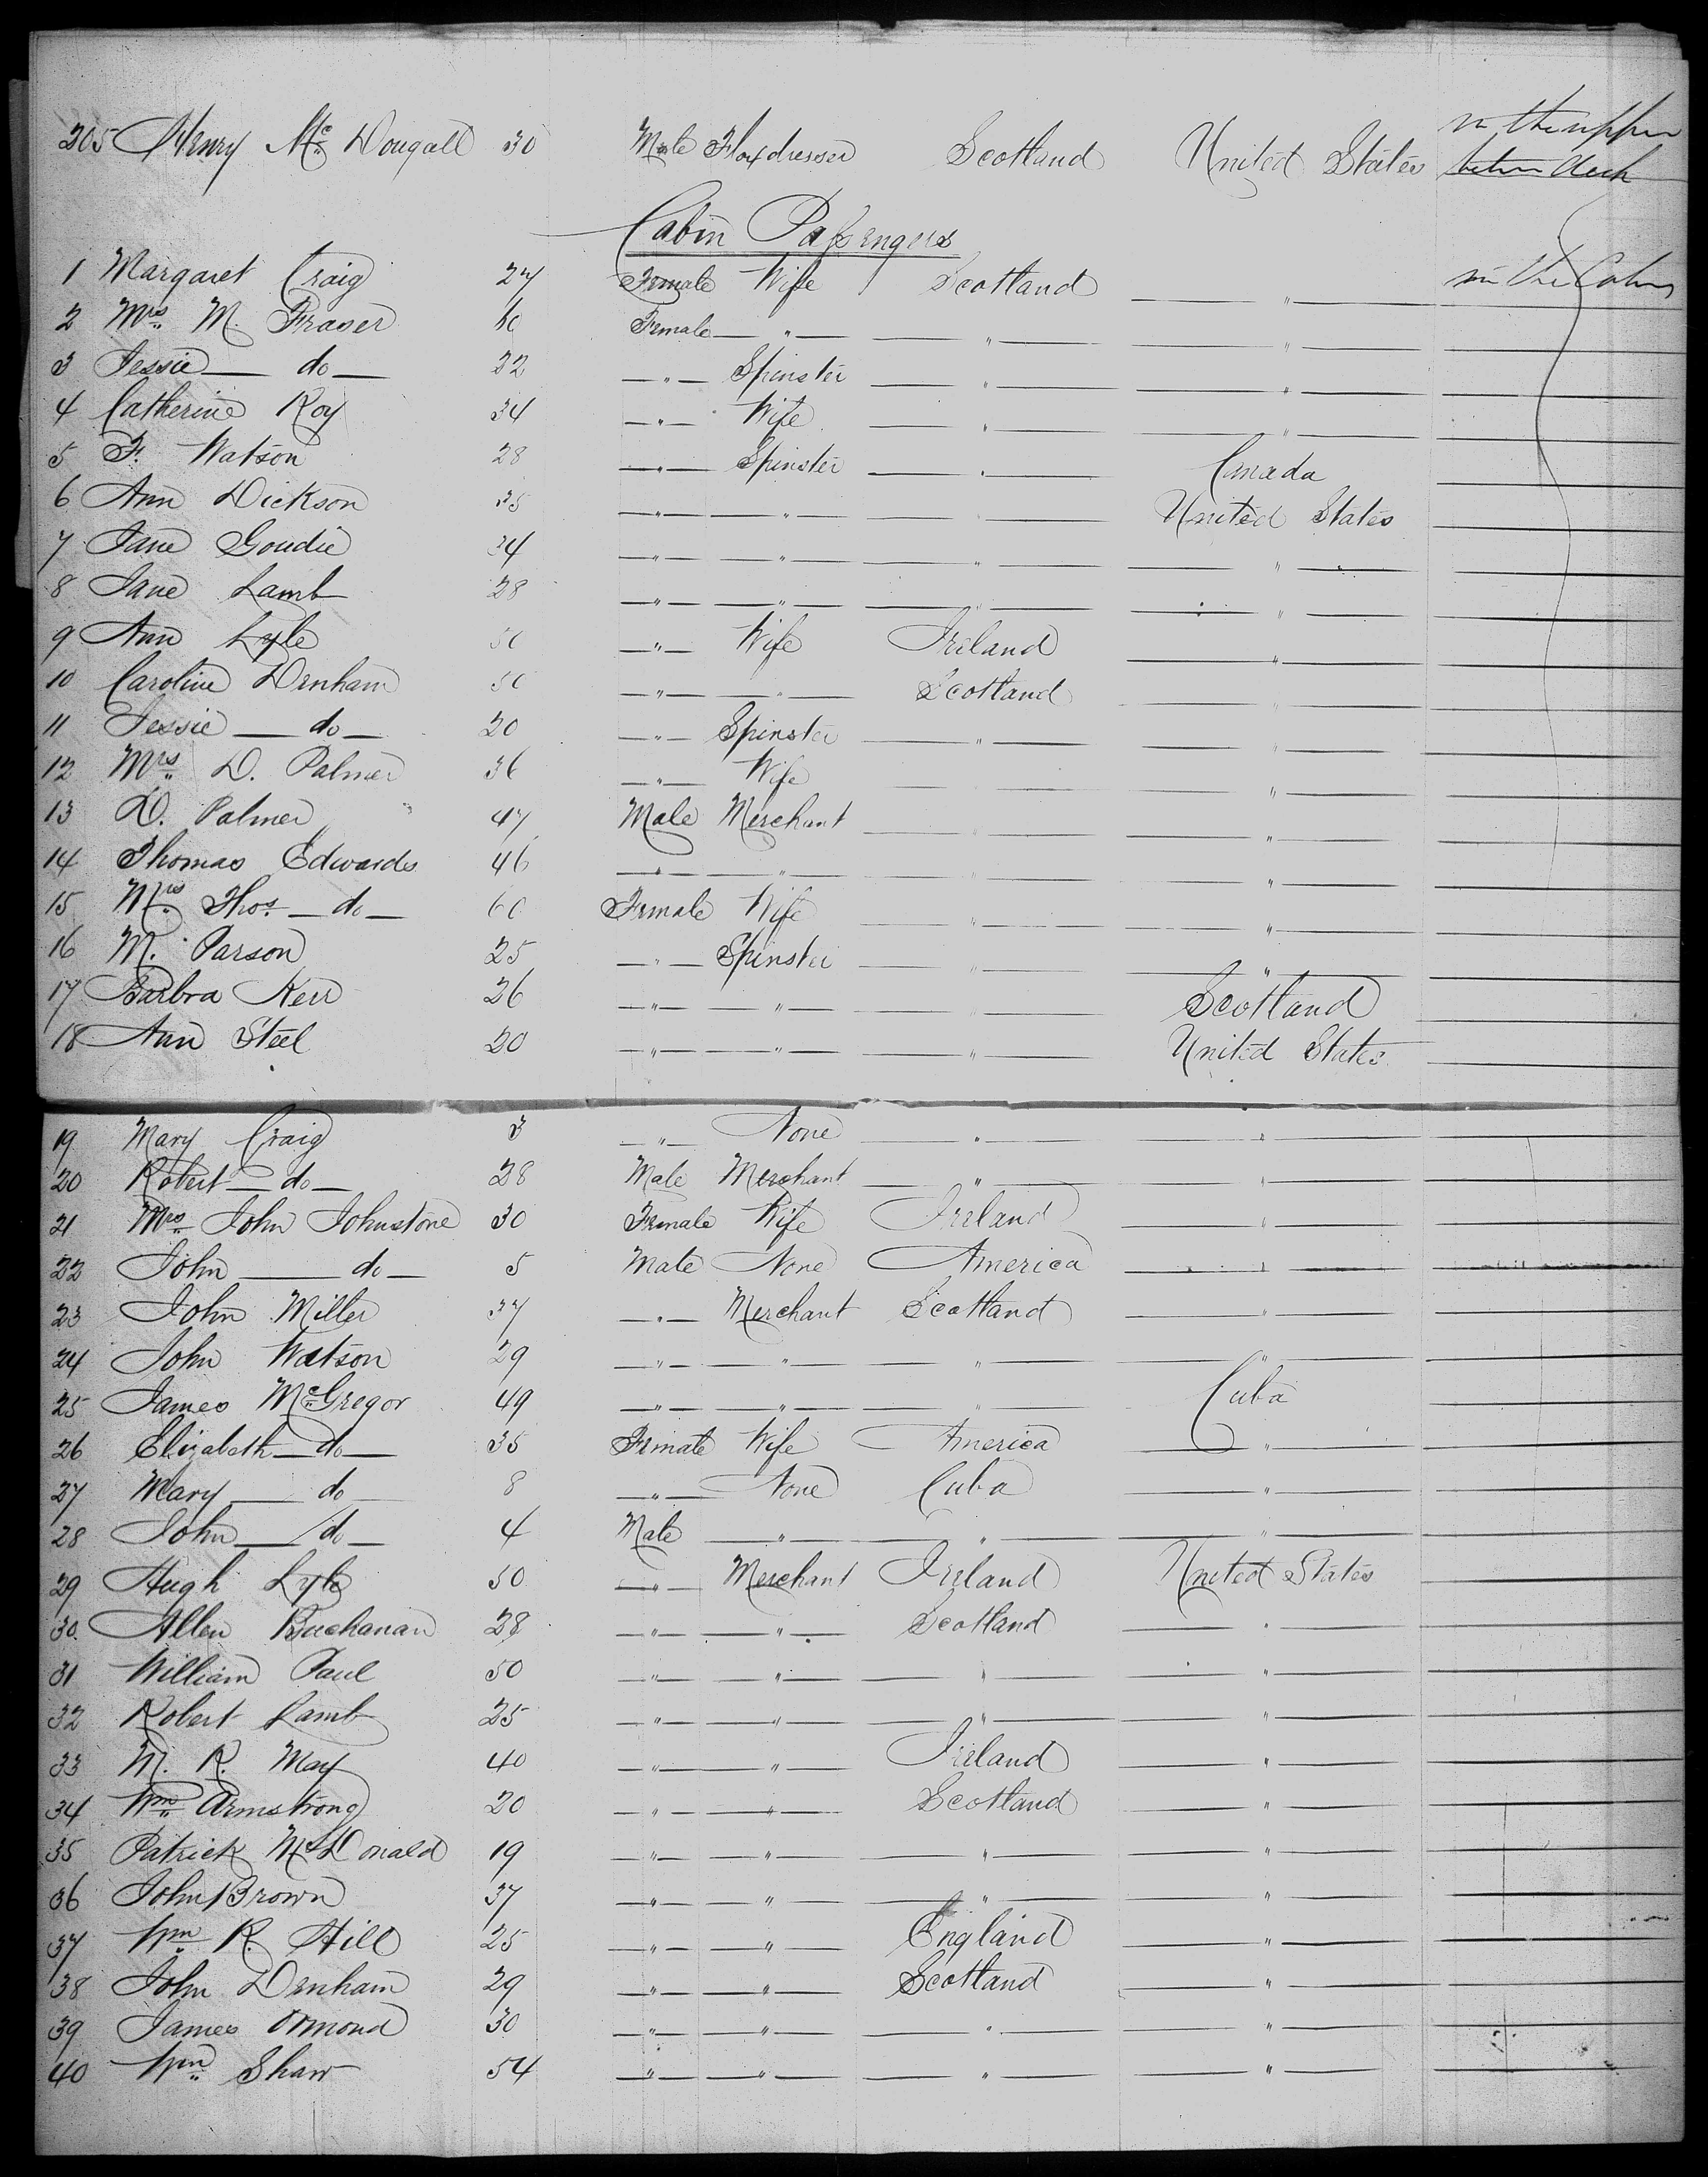 305 Henry Mc Dougall 30 Male Flaxdresser Scotland United States in the upper
between deck
Cabin Passengers
1 Margaret Craig 24 Female Wife Scotland " in the Cabin
2 Mrs M. Fraser 60 Female " " "
3 Jessie do 22 " Spinster " "
4 Catherine Roy 34 " Wife " "
5 F. Watson 28 " Spinster " Canada
6 Ann Dickson 35 " " " United States
7 Jane Goudie 34 " " " "
8 Jane Lamb 28 " " " "
9 Ann Lyle 50 " Wife Ireland "
10 Caroline Denham 50 " " Scotland "
11 Jessie do 20 " Spinster " "
12 Mrs D. Palmer 36 " Wife " "
13 D. Palmer 47 Male Merchant " "
14 Thomas Edwards 46 " " " "
15 Mrs Thos. do 60 Female Wife " "
16 M. Parson 25 " Spinster " "
17 Barbra Kerr 26 " " " Scotland
18 Ann Steel 20 " " " United States
19 Mary Craig 3 " None " "
20 Robert do 28 Male Merchant " "
21 Mrs John Johnstone 30 Female Wife Ireland "
22 John do 5 Male None America "
23 John Miller 37 " Merchant Scotland "
24 John Watson 29 " " " "
25 James McGregor 49 " " " Cuba
26 Elizabeth do 35 Female Wife America "
27 Mary do 8 " None Cuba "
28 John do 4 Male " " "
29 Hugh Lyle 50 " Merchant Ireland United States
30 Allen Buchanan 28 " " Scotland "
31 William Paul 50 " " " "
32 Robert Lamb 25 " " " "
33 M. R. May 40 " " Ireland "
34 Wm Armstrong 20 " " Scotland "
35 Patrick McDonald 19 " " " "
36 John Brown 37 " " " "
37 Wm R. Hill 25 " " England "
38 John Denham 29 " " Scotland "
39 James Ormond 30 " " " "
40 Wm Shaw 54 " " " "